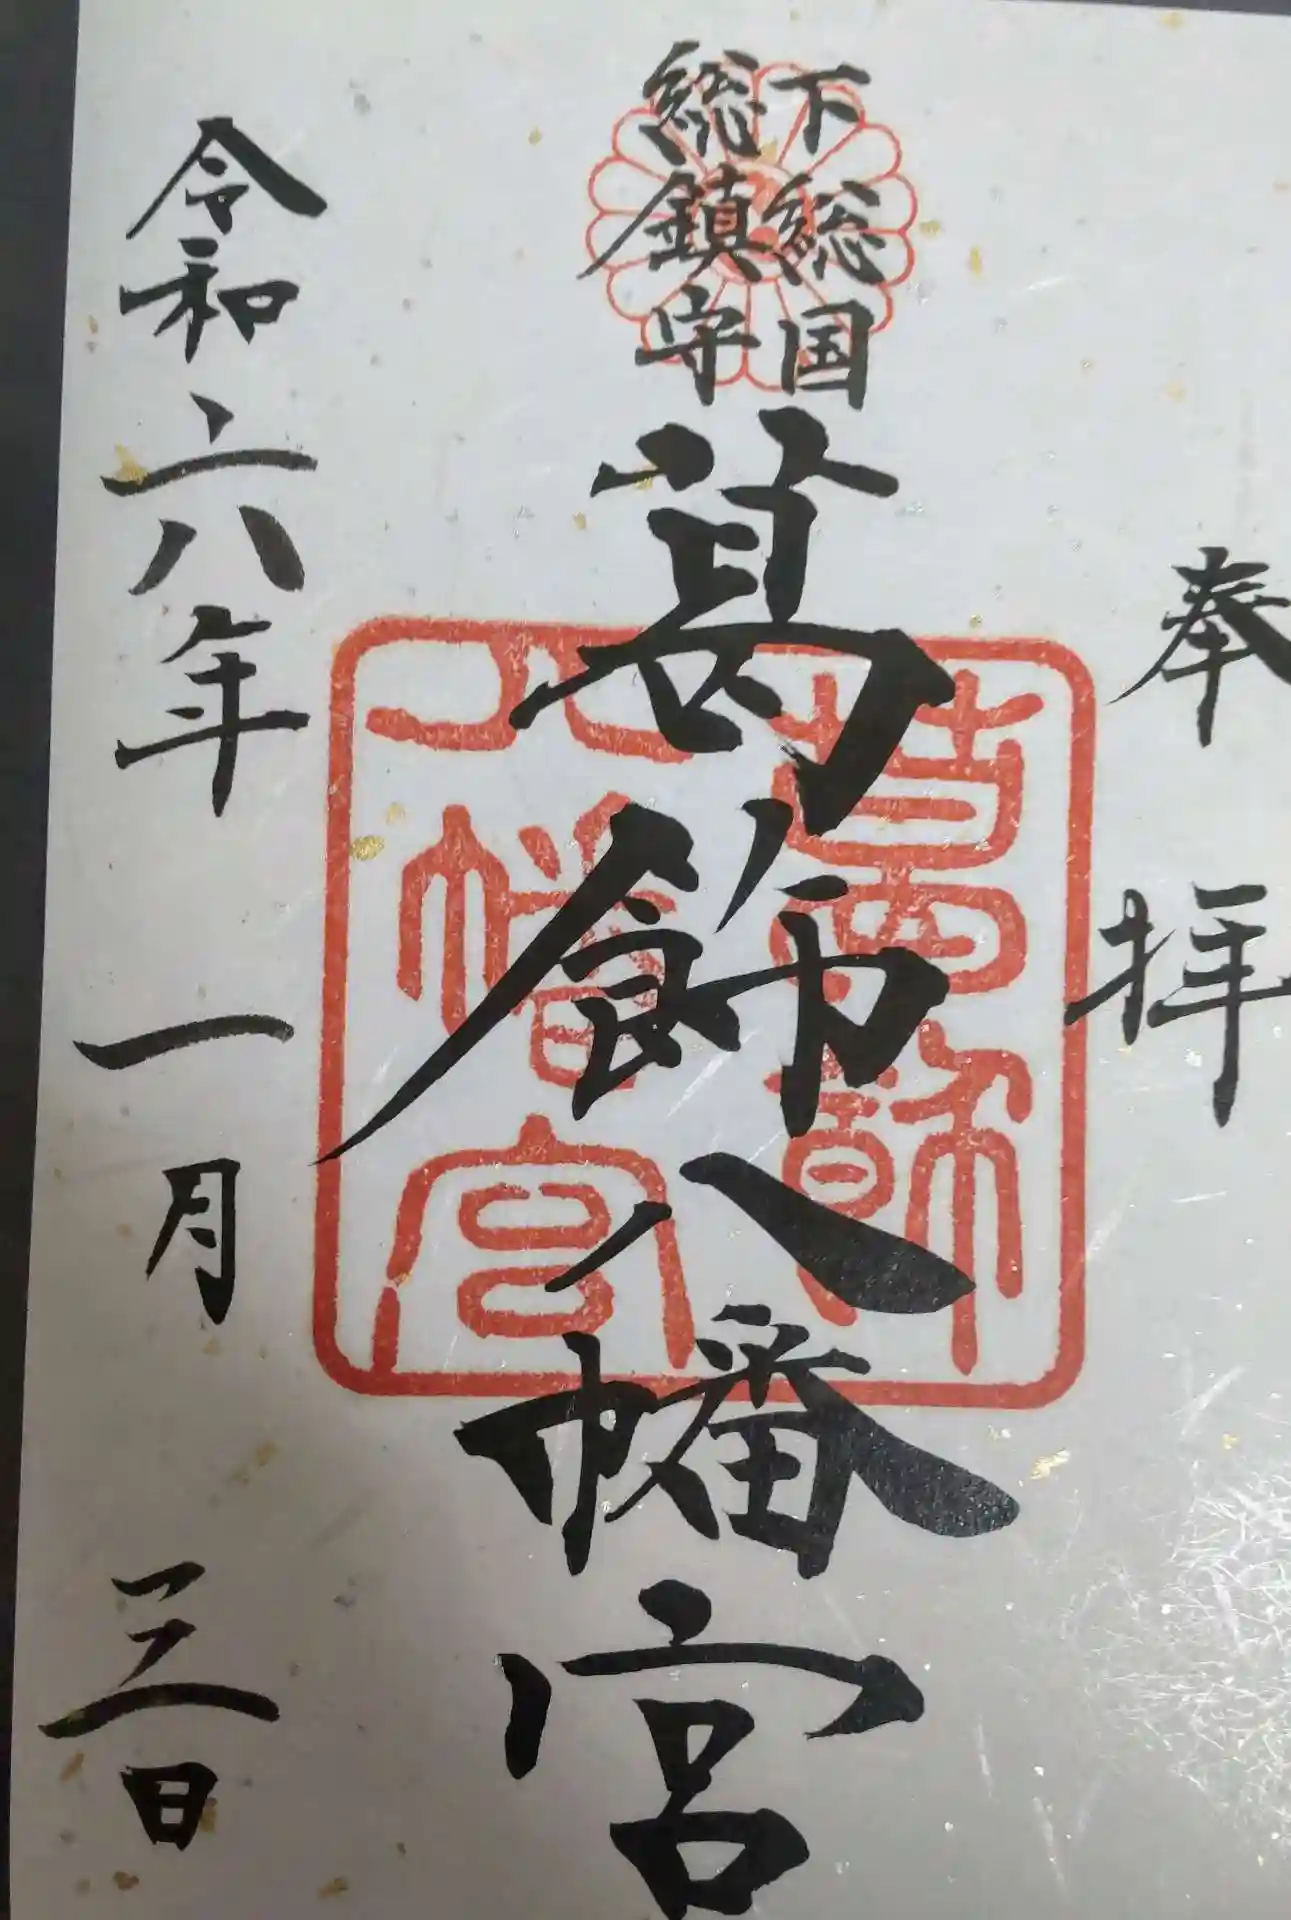 奉拝
下総国
総鎮守
葛飾八幡宮
葛飾
八幡宮
令和六年一月三日